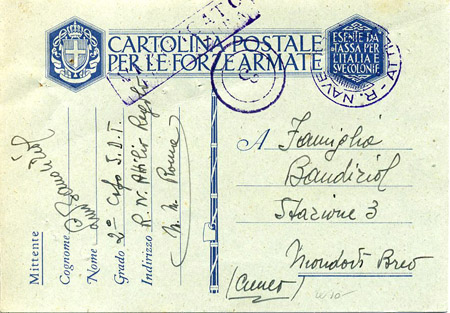 CARTOLINA POSTALE
PER LE FORZE ARMATE
ESENTE DA
TASSA PER
L'ITALIA E
SVE COLONIE
R. NAVE
A Famiglia
Bandiziol
Stazione 3
Mondovì Breo
(Cuneo)
Mittente
Cognome
Nome
Grado 2° Capo S.D.T.
Indirizzo R. N. Attilio Regolo
M. M. Roma